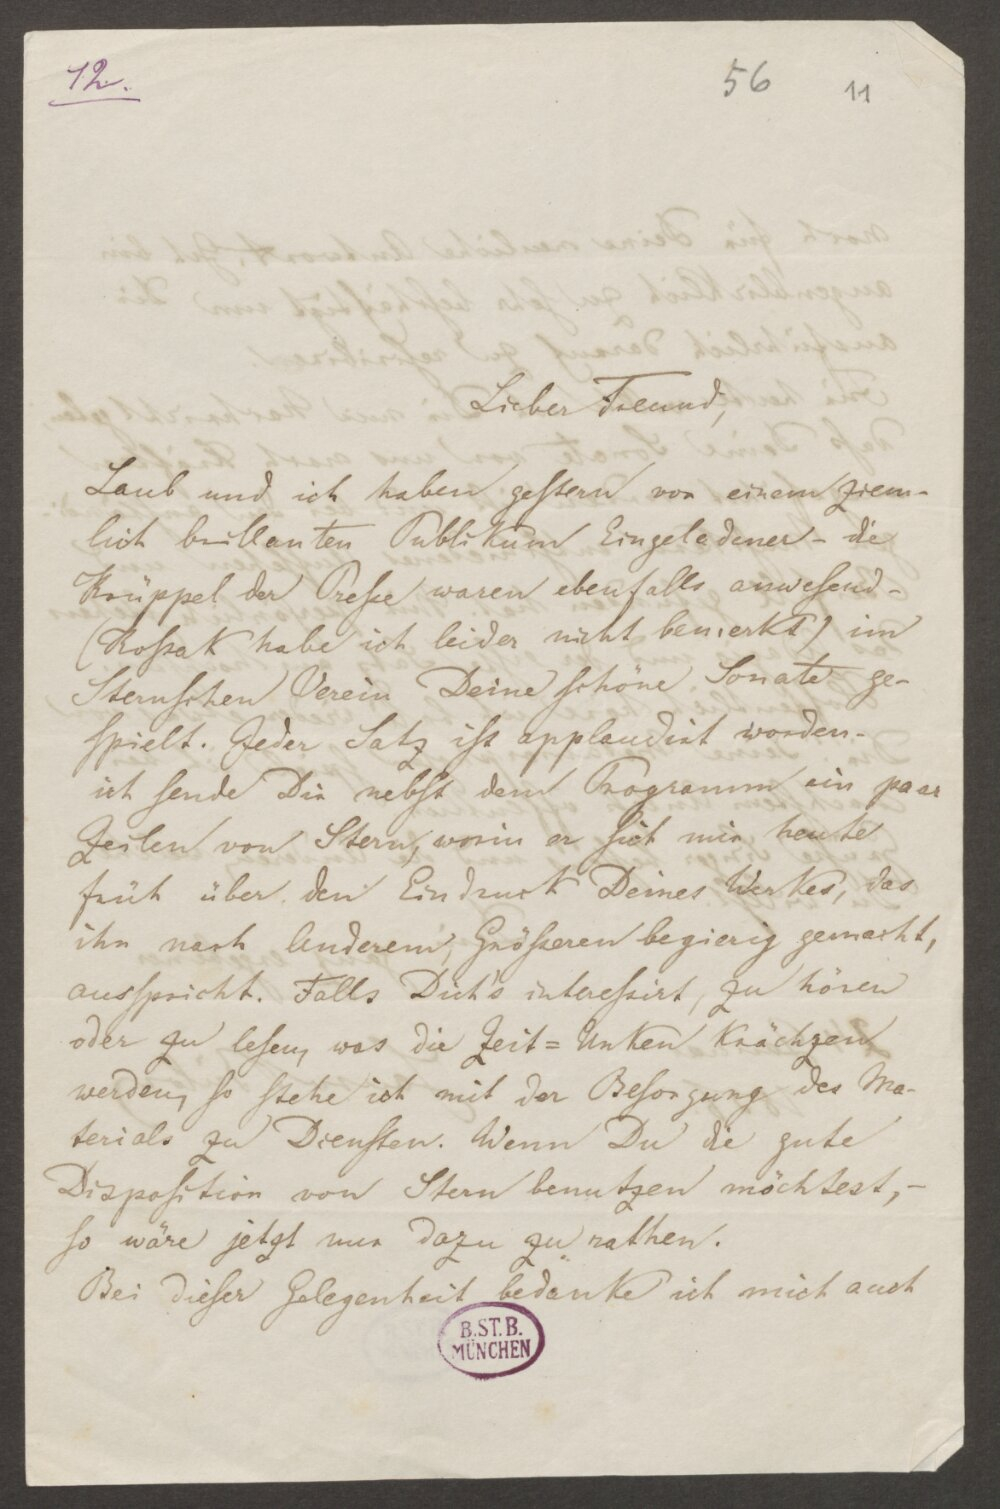 12.
56 11
Lieber Freund,
Laub und ich haben gestern vor einem ziem-
lich brillanten Publikum Eingeladener – die
Krüppel der Presse waren ebenfalls anwesend –
(Kossak habe ich leider nicht bemerkt) im
Sternschen Verein Deine schöne Sonate ge-
spielt. Jeder Satz ist applaudirt worden –
ich sende Dir nebst dem Programm ein paar
Zeilen von Stern, worin er sich mir heute
früh über den Eindruck Deines Werkes, das
ihn nach Anderem, Größeren begierig gemacht,
ausspricht. Falls Dich's interessirt, zu hören
oder zu lesen, was die Zeit=Unken krächzen
werden, so stehe ich mit der Besorgung des Ma-
terials zu Diensten. Wenn Du die gute
Disposition von Stern benutzen möchtest, –
so wäre jetzt nur dazu zu rathen.
Bei dieser Gelegenheit bedanke ich mich auch
B.ST.B.
MÜNCHEN